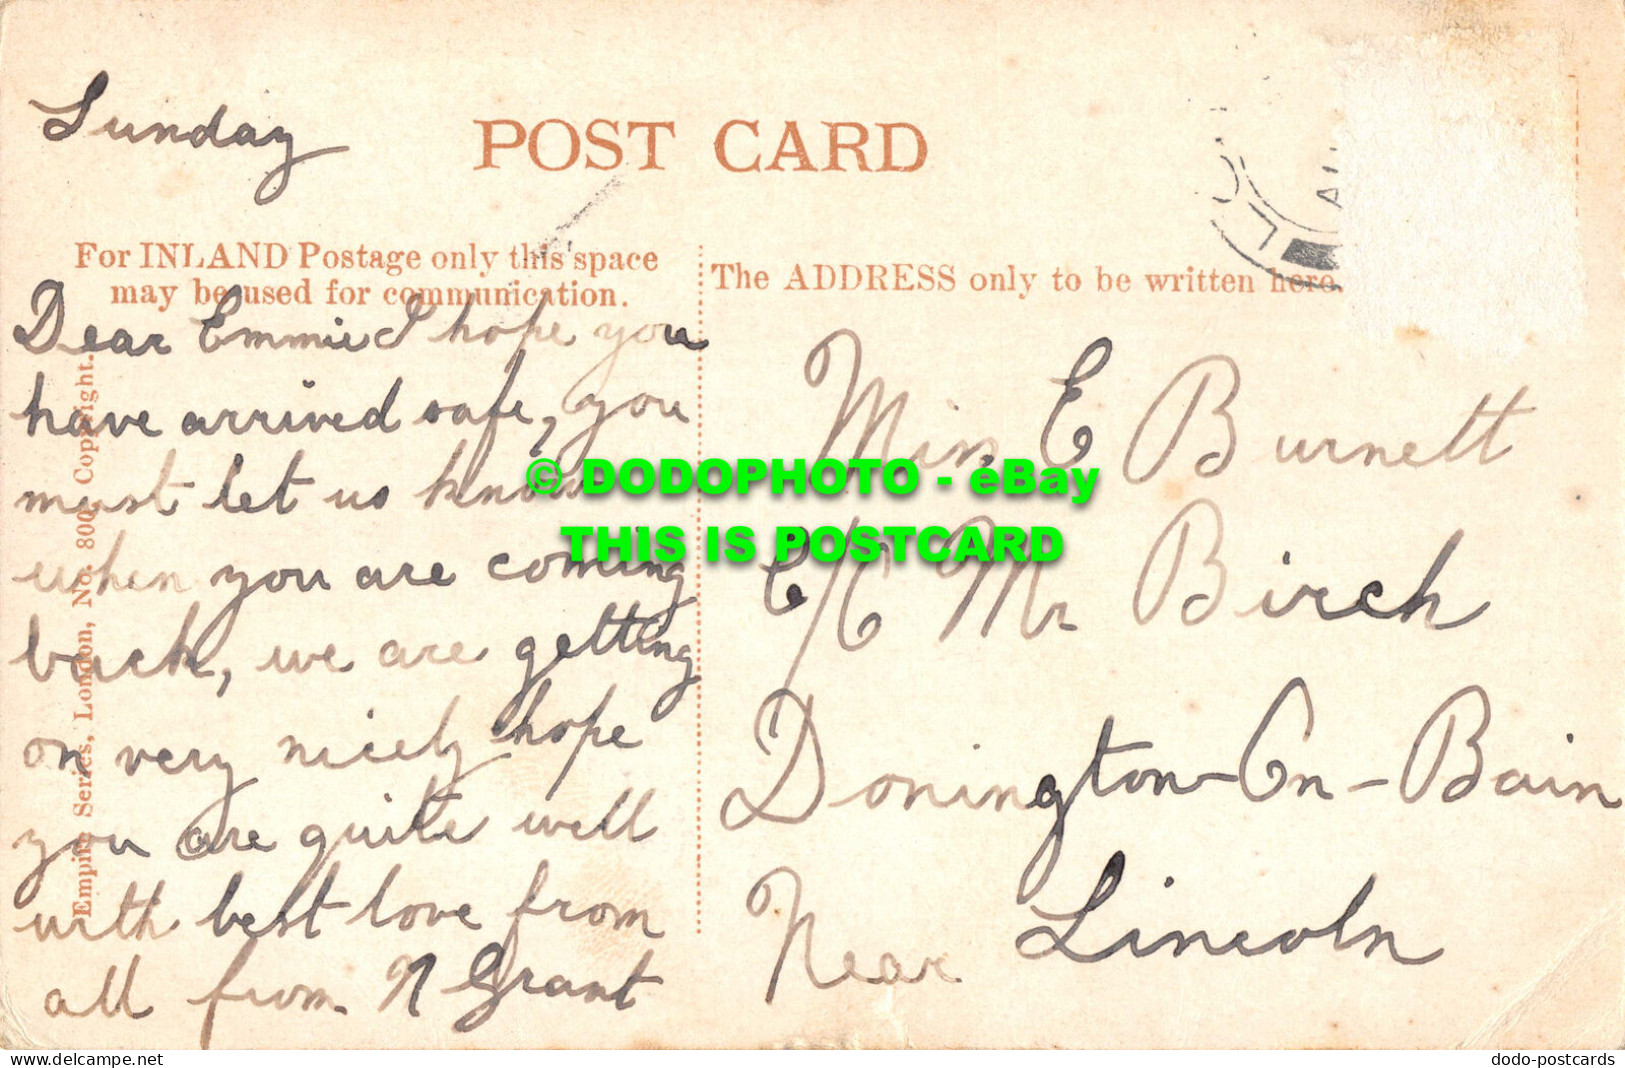 Sunday
POST CARD
For INLAND Postage only this space
may be used for communication.
The ADDRESS only to be written here.
Dear Emmie I hope you
have arrived safe, you
must let us know
when you are coming
back, we are getting
on very nicely hope
you are quite well
with best love from
all from N Grant
Miss E Burnett
C/O Mr Birch
Donington-On-Bain
Near Lincoln
Empire Series, London, No. 800, Copyright.
© DODOPHOTO - eBay
THIS IS POSTCARD
delcampe.net
dodo-postcards